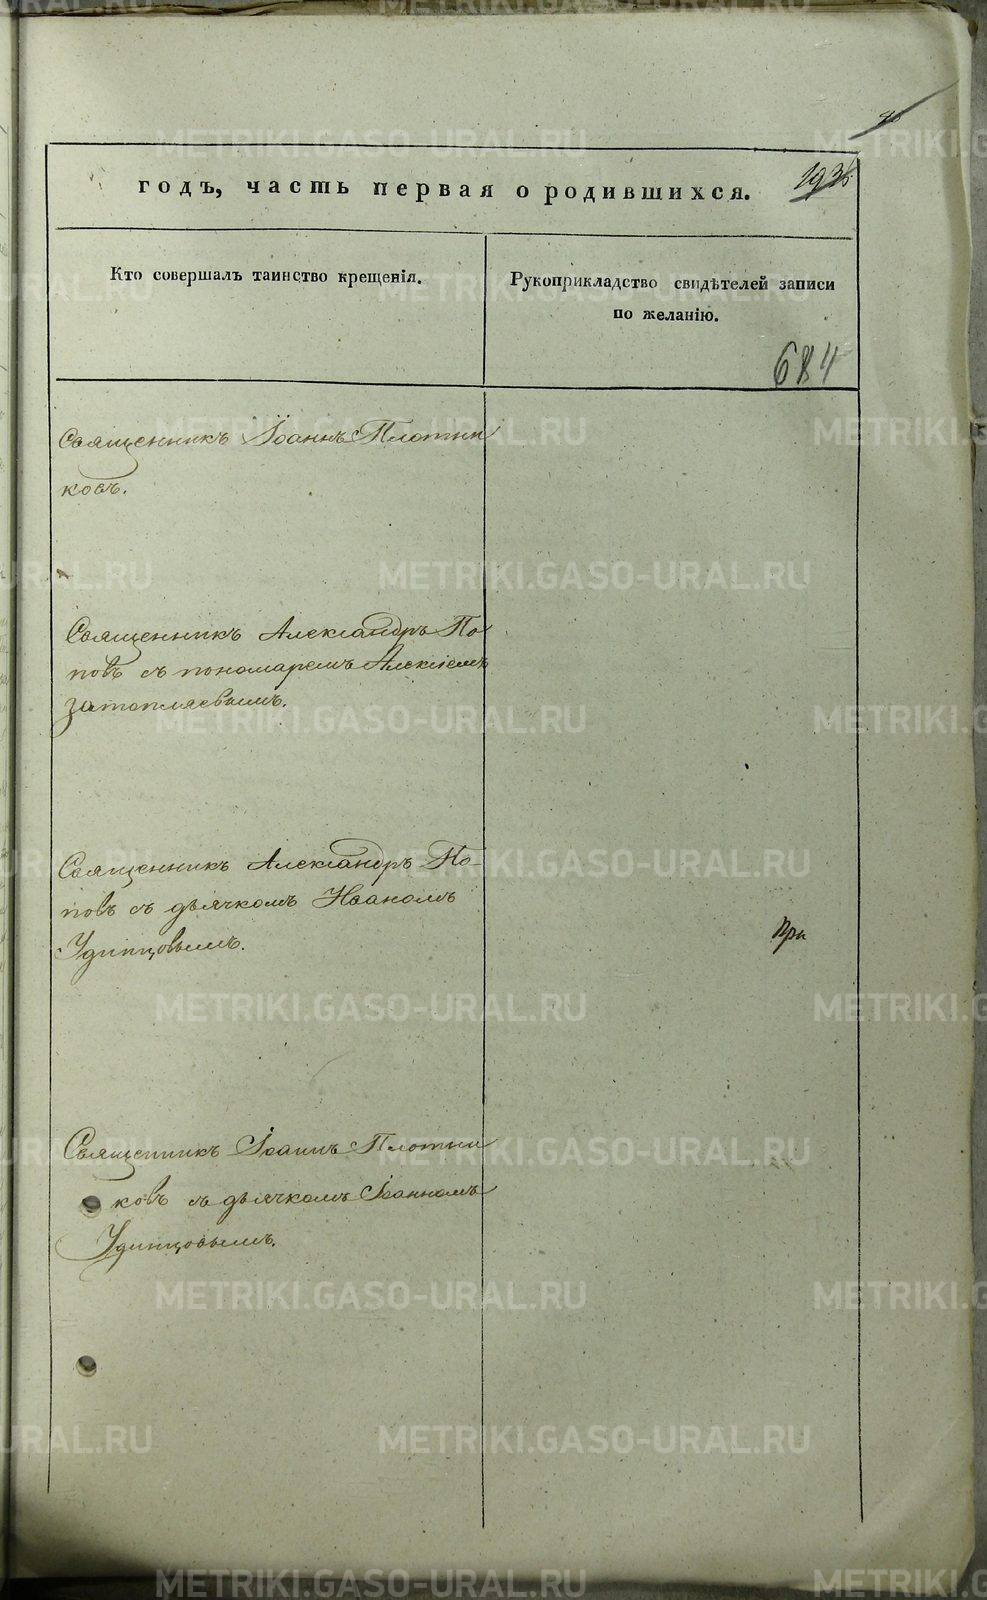 годъ, часть первая о родившихся.
Кто совершалъ таинство крещенія.
Рукоприкладство свидѣтелей записи
по желанію.
684
Священникъ Іоаннъ Плотни
ковъ.
Священникъ Александръ По
повъ съ пономаремъ Алексіемъ
Затопляевымъ.
Священникъ Александръ По-
повъ съ дьячкомъ Иваномъ
Удинцовымъ.
При
Священникъ Іоаннъ Плотни
ковъ съ дьячкомъ Іоанномъ
Удинцовымъ.
METRIKI.GASO-URAL.RU